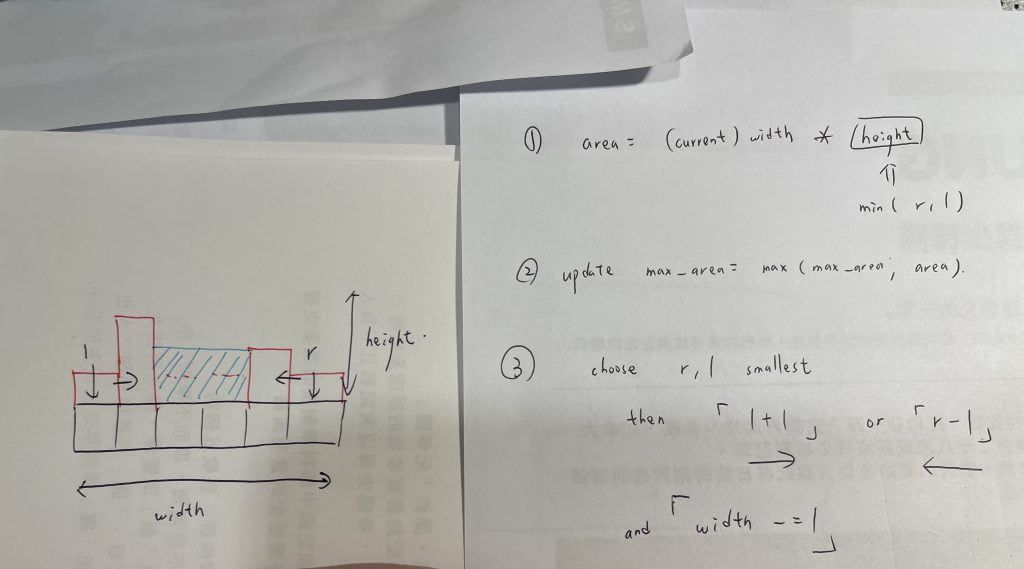 l
r
height.
width
① area = (current) width * height
min( r, l )
② update max_area = max (max_area, area).
③ choose r, l smallest
then 「 l+1 」 or 「 r-1」
and 「 width -= 1 」